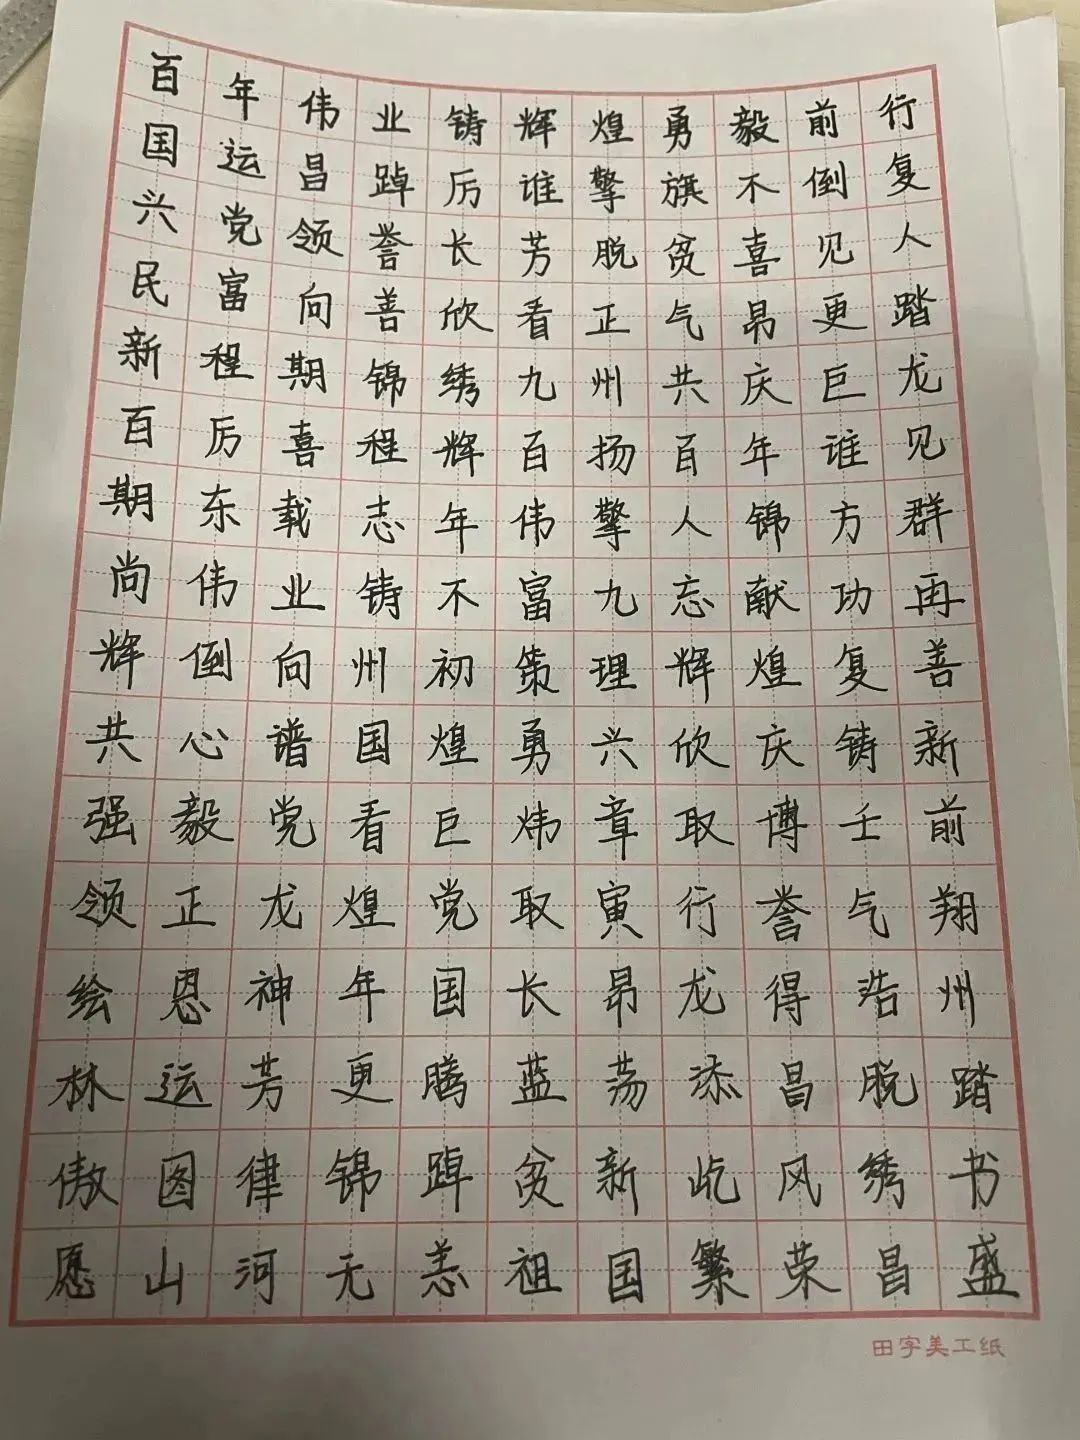 百年伟业铸辉煌勇毅前行
国运昌踔厉谁擎旗不倒复
兴党领誉长芳脱贫喜见人
民富向善欣看正气昂更踏
新程期锦绣九州共庆巨龙
百厉喜程辉百扬百年谁见
期东载志年伟擎人锦方群
尚伟业铸不富九忘献功再
辉倒向州初策理辉煌复善
共心谱国煌勇兴欣庆铸新
强毅党看巨炜章取博壬前
领正龙煌党取寅行誉气翔
绘恩神年国长昂龙得浩州
林运芳更腾蓝荡添昌脱踏
傲图律锦踔贫新屹风绣书
愿山河无恙祖国繁荣昌盛
田字美工纸